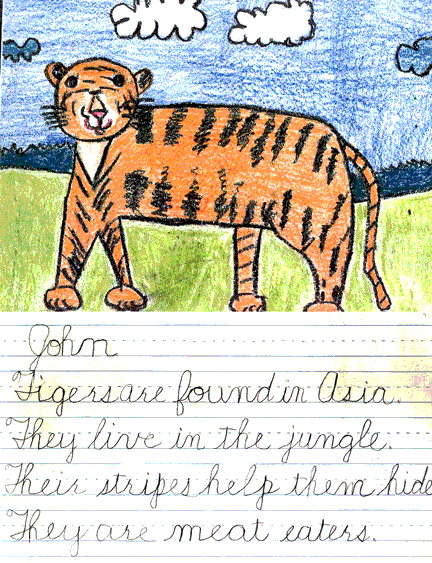 John
Tigers are found in Asia.
They live in the jungle.
Their stripes help them hide
They are meat eaters.